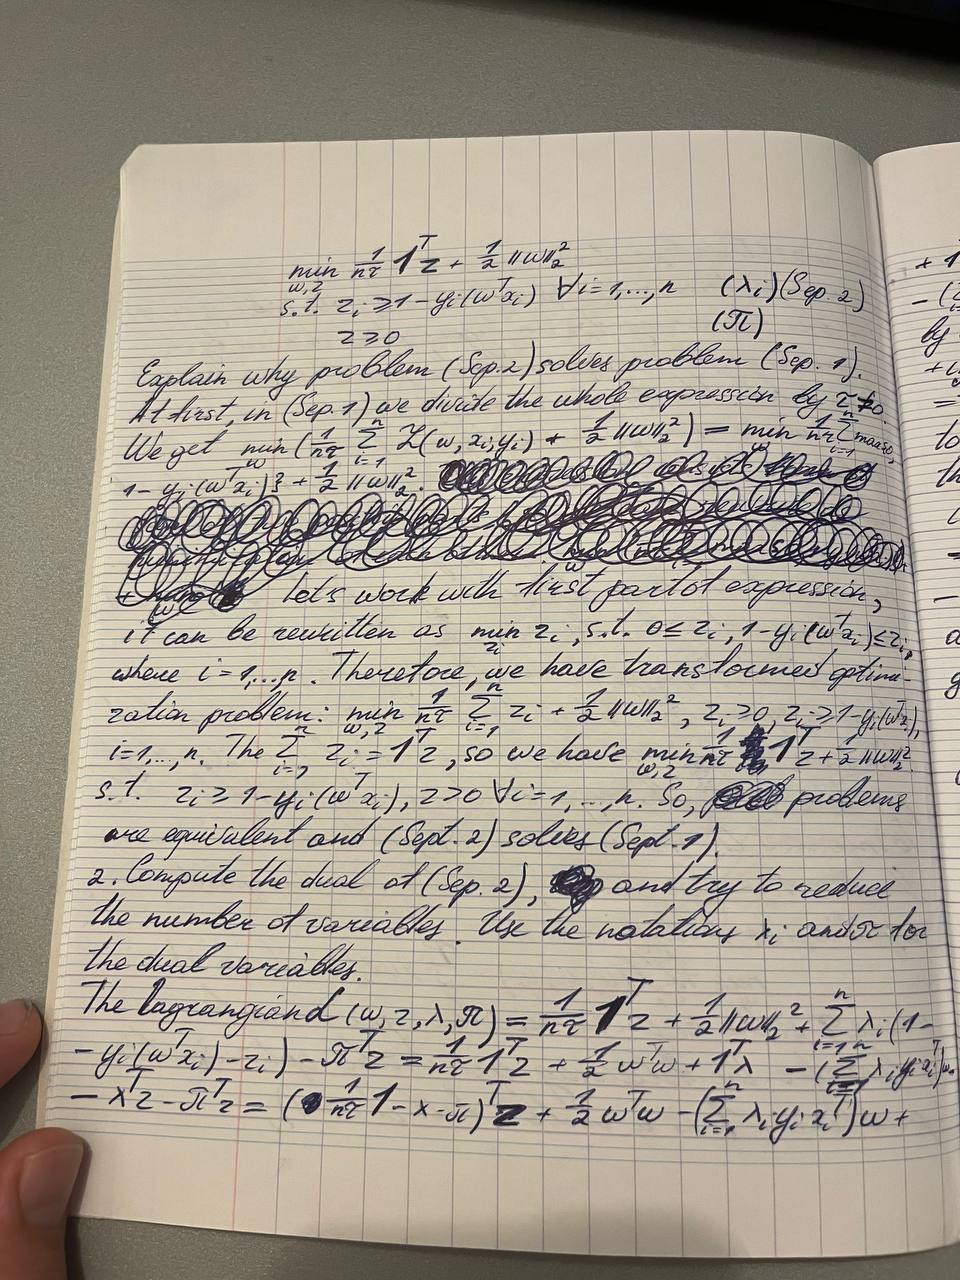 min 1/nτ 1ᵀz + 1/2 ||w||₂²
w,z
s.t. zᵢ ≥ 1 - yᵢ(wᵀxᵢ) ∀i = 1,...,n (λᵢ) (Sep. 2)
z ≥ 0 (π)
Explain why problem (Sep. 2) solves problem (Sep. 1).
At first, in (Sep. 1) we divide the whole expression by τ ≠ 0.
We get min_w (1/nτ Σᵢ₌₁ⁿ ℒ(w, xᵢ, yᵢ) + 1/2 ||w||₂²) = min_w 1/nτ Σᵢ₌₁ⁿ max{0,
1 - yᵢ(wᵀxᵢ)} + 1/2 ||w||₂².
let's work with first part of expression,
it can be rewritten as min_zᵢ zᵢ, s.t. 0 ≤ zᵢ, 1 - yᵢ(wᵀxᵢ) ≤ zᵢ,
where i = 1,...,n. Therefore, we have transformed optimi-
zation problem: min_w,z 1/nτ Σᵢ₌₁ⁿ zᵢ + 1/2 ||w||₂², zᵢ ≥ 0, zᵢ ≥ 1 - yᵢ(wᵀxᵢ),
i = 1,...,n. The Σᵢ₌₁ⁿ zᵢ = 1ᵀz, so we have min_w,z 1/nτ 1ᵀz + 1/2 ||w||₂²
s.t. zᵢ ≥ 1 - yᵢ(wᵀxᵢ), z ≥ 0 ∀i = 1,...,n. So, problems
are equivalent and (Sept. 2) solves (Sept. 1).
2. Compute the dual of (Sep. 2), and try to reduce
the number of variables. Use the notations λᵢ and π for
the dual variables.
The Lagrangian L(w, z, λ, π) = 1/nτ 1ᵀz + 1/2 ||w||₂² + Σᵢ₌₁ⁿ λᵢ(1-
- yᵢ(wᵀxᵢ) - zᵢ) - πᵀz = 1/nτ 1ᵀz + 1/2 wᵀw + 1ᵀλ - (Σᵢ₌₁ⁿ λᵢyᵢxᵢᵀ)w -
- λᵀz - πᵀz = (1/nτ 1 - λ - π)ᵀz + 1/2 wᵀw - (Σᵢ₌₁ⁿ λᵢyᵢxᵢᵀ)w +